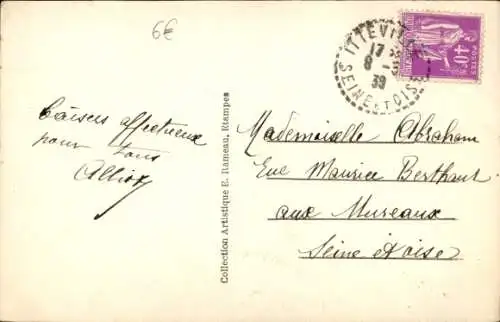 6€
ITTEVILLE
17
8 -
39
SEINE ET OISE
40c
POSTES
Baisers affectueux
pour tous
Collection Artistique E. Rameau, Etampes
Mademoiselle Abraham
Rue Maurice Berthaut
aux Mureaux
Seine et oise